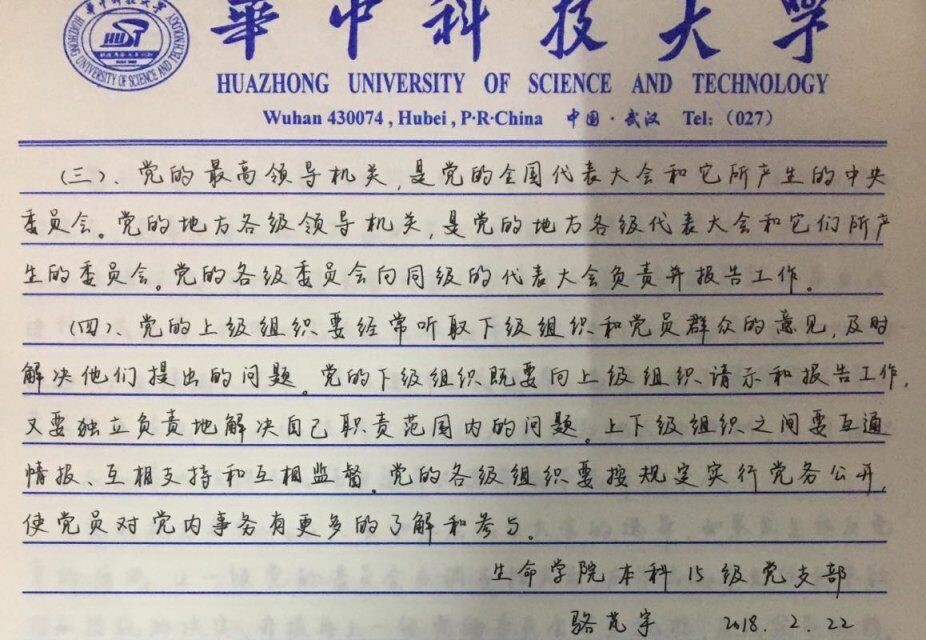 華中科技大學
HUAZHONG UNIVERSITY OF SCIENCE AND TECHNOLOGY
Wuhan 430074, Hubei, P·R·China 中国·武汉 Tel:(027)
(三)、党的最高领导机关,是党的全国代表大会和它所产生的中央
委员会。党的地方各级领导机关,是党的地方各级代表大会和它们所产
生的委员会。党的各级委员会向同级的代表大会负责并报告工作。
(四)、党的上级组织要经常听取下级组织和党员群众的意见,及时
解决他们提出的问题。党的下级组织既要向上级组织请示和报告工作,
又要独立负责地解决自己职责范围内的问题。上下级组织之间要互通
情报、互相支持和互相监督。党的各级组织要按规定实行党务公开,
使党员对党内事务有更多的了解和参与。
生命学院本科15级党支部
骆芃宇 2018.2.22